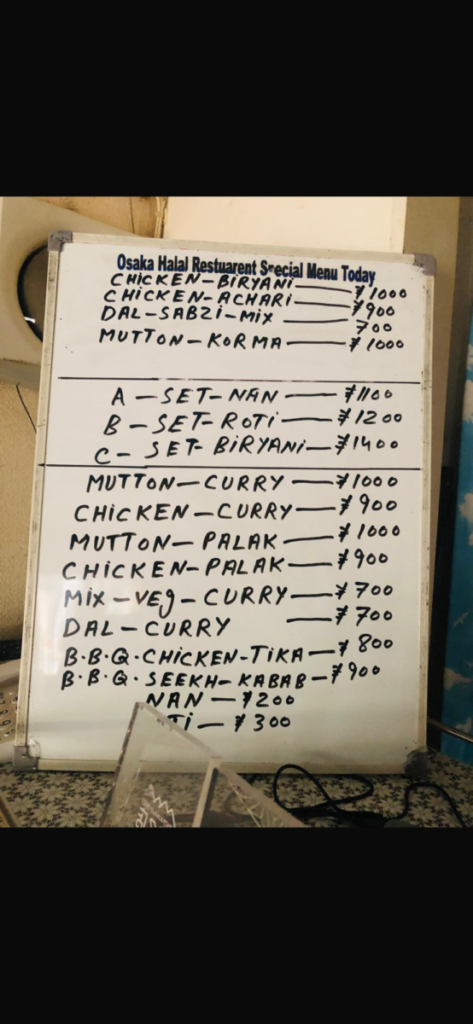 Osaka Halal Restuarent Special Menu Today
CHICKEN-BIRYANI — ¥1000
CHICKEN-ACHARI — ¥900
DAL-SABZI-MIX — 700
MUTTON-KORMA — ¥1000
A-SET-NAN — ¥1100
B-SET-ROTI — ¥1200
C-SET-BIRYANI — ¥1400
MUTTON-CURRY — ¥1000
CHICKEN-CURRY — ¥900
MUTTON-PALAK — ¥1000
CHICKEN-PALAK — ¥900
MIX-VEg-CURRY — ¥700
DAL-CURRY — ¥700
B.B.Q.CHICKEN-TIKA — ¥800
B.B.Q.SEEKH-KABAB — ¥900
NAN — ¥200
TI — ¥300